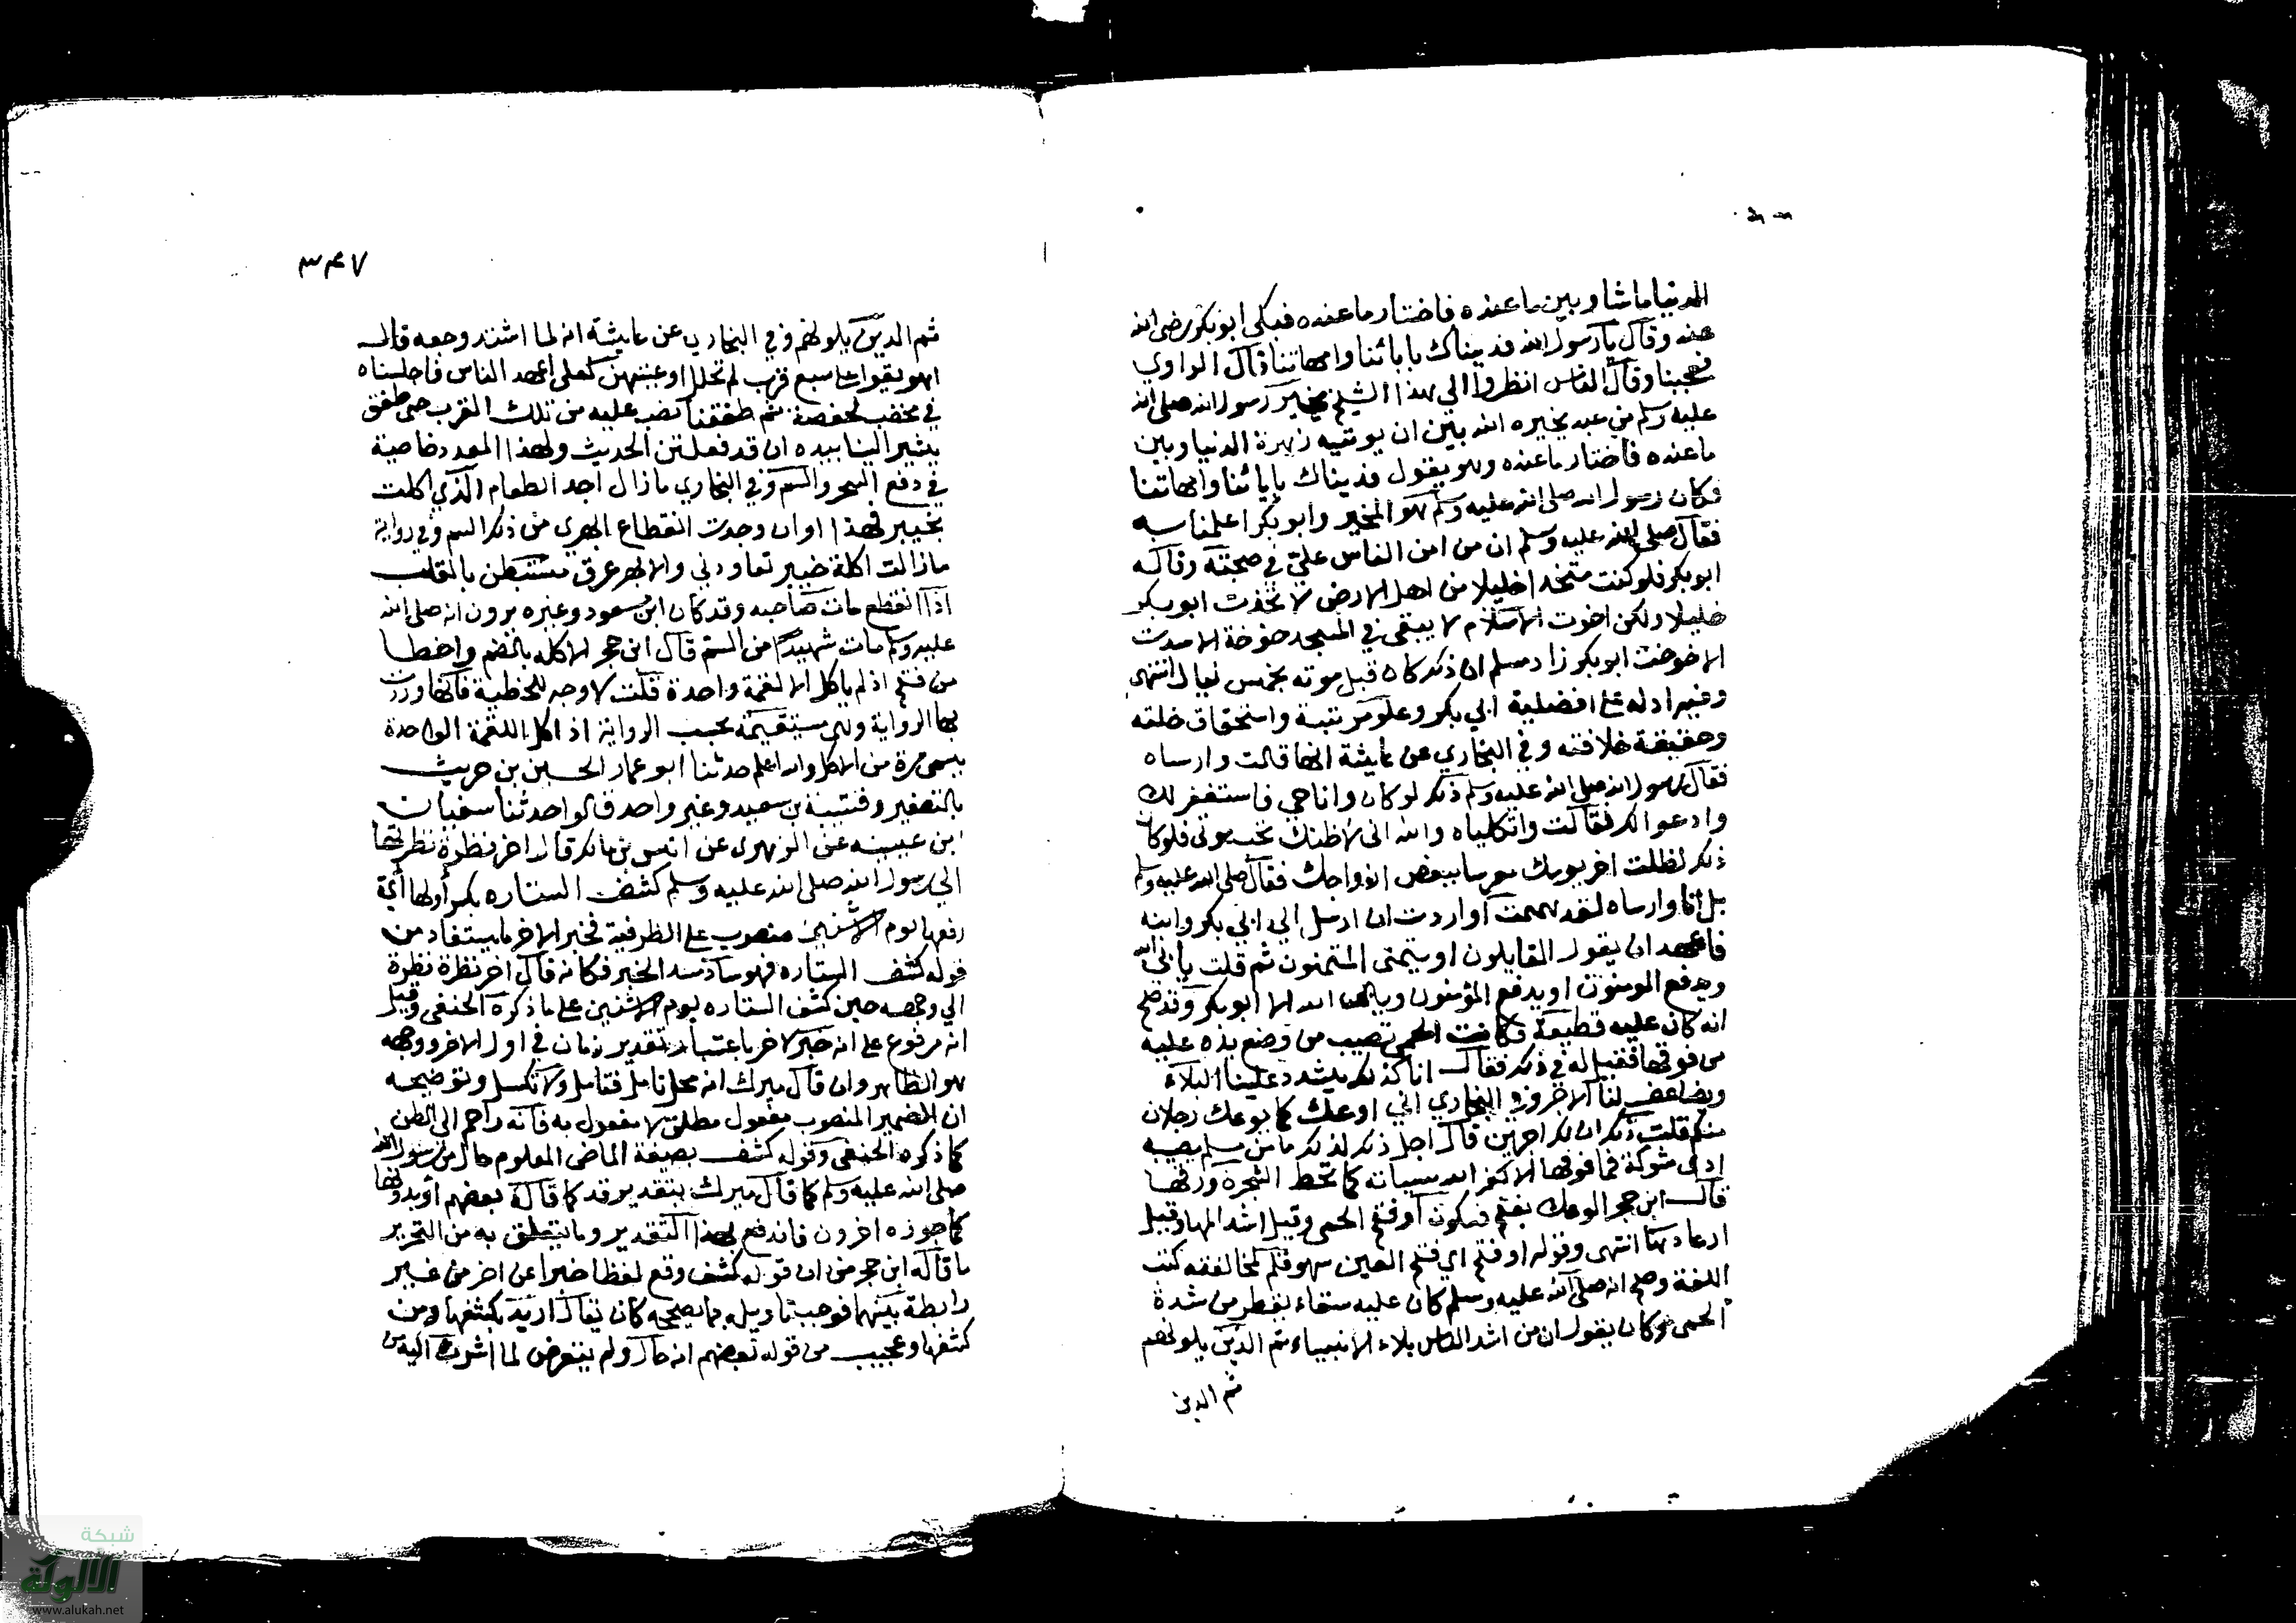 الدنيا ما شا وبين ما عنده فاختار ما عنده فبكى ابو بكر رضى الله
عنه وقال يا رسول الله فديناك بابائنا وامهاتنا قال الراوي
فعجبنا وقال الناس انظروا الى هذا الشيخ يخبر رسول الله صلى الله
عليه وسلم من عبد يخيره الله بين ان يوتيه زهرة الدنيا وبين
ما عنده فاختار ما عنده وهو يقول فديناك بابائنا وامهاتنا
فكان رسول الله صلى الله عليه وسلم هو المخير وابو بكر اعلمنا به
فقال صلى الله عليه وسلم ان من امن الناس علي في صحبته وماله
ابو بكر فلو كنت متخذا خليلا من اهل الارض لاتخذت ابو بكر
خليلا ولكن اخوت الاسلام لا يبقى في المسجد خوخة الا سدت
الا خوخت ابو بكر زاد مسلم ان ذلك كان قبل موته بخمس ليال انتهى
وفيه ادله على افضلية ابي بكر وعلو مرتبة واستحقاق خلقه
وحقيقة خلافته وفي البخاري عن عايشة انها قالت وارساه
فقال رسول الله صلى الله عليه وسلم ذلك لو كان وانا حي فاستغفر لك
وادعوا لك فقالت واثكلياه والله انى لاظنك تحب موتى فلو كان
ذلك لظللت اخر يومك معرسا ببعض ازواجك فقال صلى الله عليه وسلم
بل انا وارساه لقد هممت او اردت ان ارسل الى ابي بكر وابنه
فاعهد ان يقول القايلون او يتمنى المتمنون ثم قلت يابى الله
ويدفع المومنون او يدفع المؤمنون ويابى الله الا ابو بكر وقد صح
انه كان عليه قطيفة فكانت الحمى تصيب من وضع يده عليه
من فوقها فقيل له في ذلك فقال انا كذلك يشدد علينا البلاء
ويضاعف لنا الاجر وفي البخاري اني اوعك كما يوعك رجلان
منكم قلت ذلك ان لك اجرين قال اجل ذلك لذلك ما من مسلم يصيبه
اذى شوكة فما فوقها الا كفر الله سيياته كما تحط الشجرة ورقها
قال ابن حجر الوعك بفتح فسكون او فتح الحمى وقيل اشد المها وقيل
ارعادها انتهى وقوله او فتح اي فتح العين سهو قلم لمخالفته كتب
اللغة وصح انه صلى الله عليه وسلم كان عليه سقاء يقطر من شدة
الحمى وكان يقول ان من اشد الناس بلاء الانبياء ثم الذين يلونهم
ثم الذين
٣٤٧
ثم الذين يلونهم وفي البخاري عن عايشة انه لما اشتد وجعه قال
اهريقوا على سبع قرب لم تحلل اوعيتهن لعلى اعهد الناس فاجلسناه
في مخضب لحفصة ثم طفقنا نصب عليه من تلك القرب حتى طفق
يشير الينا بيده ان قد فعلتن الحديث ولهذا العدد خاصية
في دفع السحر والسم وفي البخاري ما زال اجد الطعام الذي اكلت
بخيبر فهذا اوان وجدت انقطاع ابهري من ذلك السم وفي رواية
ما زالت اكلة خيبر تعاودني والابهر عرق مستبطن بالقلب
اذا انقطع مات صاحبه وقد كان ابن مسعود وغيره يرون انه صلى الله
عليه وسلم مات شهيدا من السم قال ابن حجر الاكله بالضم واخطا
من فتح اذ لم ياكل الا لقمة واحدة قلت لا وجه للخطية فانها وردت
بها الرواية وهي مستقيمة بحسب الرواية اذ اكل اللقمة الواحدة
يسمى مرة من الاكل والله اعلم حدثنا ابو عمار الحسين بن حريث
بالتصغير وقتيبة بن سعيد وغير واحد قالوا حدثنا سفيان
ابن عيينه عن الزهرى عن انس بن مالك قال اخر نظرة نظرتها
الى رسول الله صلى الله عليه وسلم كشف الستاره بكسر اولها أي
رفعها يوم الاثنين منصوب على الظرفية فخبر الاخر ما يستفاد من
قوله كشف الستاره فهو ساد مسد الخبر فكانه قال اخر نظرة نظرة
الى وجهه حين كشف الستاره يوم الاثنين على ما ذكره الحنفى وقيل
انه مرفوع على انه خبر لاخر باعتبار تقدير زمان في اول الاخر ووجهه
هو الظاهر وان قال ميرك انه محل تامل فتامل ولا تكسل وتوضيحه
ان الضمير المنصوب مفعول مطلق لا مفعول به فانه راجع الى الظن
كما ذكره الحنفى وقوله كشف بصيغة الماضى المعلوم حال من رسول الله
صلى الله عليه وسلم كما قال ميرك بتقدير قد كما قاله بعضهم او بدونها
كما جوزه اخرون فاندفع بهذا التقدير وما يتعلق به من التحرير
ما قاله ابن حجر من ان قوله كشف وقع لفظا خبرا عن اخر من غير
رابطة بينهما فوجب تاويله بما يصححه كان يقال اريد بكشفها زمن
كشفها وعجيب من قول بعضهم انه حال ولم يتعرض لما اشرت اليه من
شبكة
الألوكة
www.alukah.net